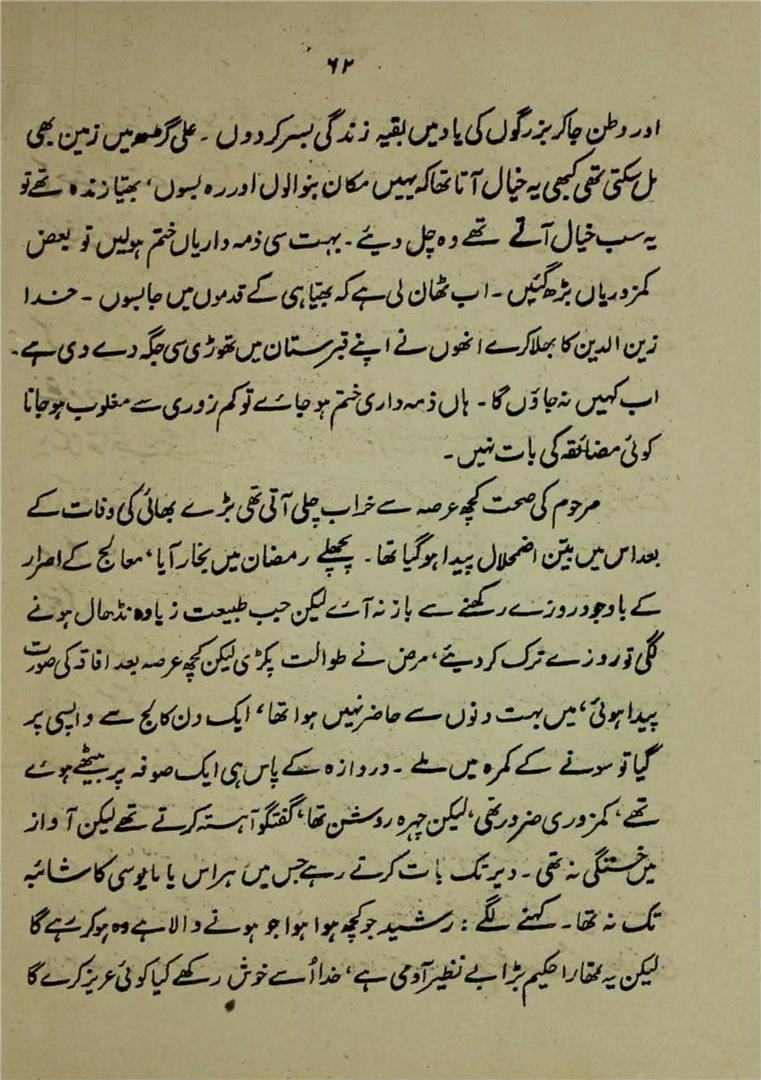 ۶۲
اور وطن جاکر بزرگوں کی یاد میں بقیہ زندگی بسر کردوں ۔ علی گڑھ میں زمین بھی
مل سکتی تھی کبھی یہ خیال آتا تھا کہ یہیں مکان بنوالوں اور رہ بسوں، بھیّا زندہ تھے تو
یہ سب خیال آتے تھے وہ چل دیئے ۔ بہت سی ذمہ داریاں ختم ہولیں تو بعض
کمزوریاں بڑھ گئیں ۔ اب ٹھان لی ہے کہ بھیّا ہی کے قدموں میں جا بسوں ۔ خدا
زین الدین کا بھلا کرے انھوں نے اپنے قبرستان میں تھوڑی سی جگہ دے دی ہے۔
اب کہیں نہ جاؤں گا ۔ ہاں ذمہ داری ختم ہوجائے تو کم زوری سے مغلوب ہوجانا
کوئی مضائقہ کی بات نہیں ۔
مرحوم کی صحت کچھ عرصہ سے خراب چلی آتی تھی بڑے بھائی کی وفات کے
بعد اس میں بیّن اضمحلال پیدا ہوگیا تھا ۔ پچھلے رمضان میں بخار آیا، معالج کے اصرار
کے باوجود روزے رکھنے سے باز نہ آئے لیکن جب طبیعت زیادہ نڈھال ہونے
لگی تو روزے ترک کردیئے، مرض نے طوالت پکڑی لیکن کچھ عرصہ بعد افاقہ کی صورت
پیدا ہوئی، میں بہت دنوں سے حاضر نہیں ہوا تھا، ایک دن کالج سے واپسی پر
گیا تو سونے کے کمرہ میں ملے ۔ دروازہ کے پاس ہی ایک صوفہ پر بیٹھے ہوئے
تھے، کمزوری ضرور تھی، لیکن چہرہ روشن تھا، گفتگو آہستہ کرتے تھے لیکن آواز
میں خستگی نہ تھی ۔ دیر تک بات کرتے رہے جس میں ہراس یا مایوسی کا شائبہ
تک نہ تھا ۔ کہنے لگے : رشید جو کچھ ہوا ہوا جو ہونے والا ہے وہ ہوکر رہے گا
لیکن یہ تمھارا حکیم بڑا بے نظیر آدمی ہے، خدا اُسے خوش رکھے کیا کوئی عزیز کرے گا